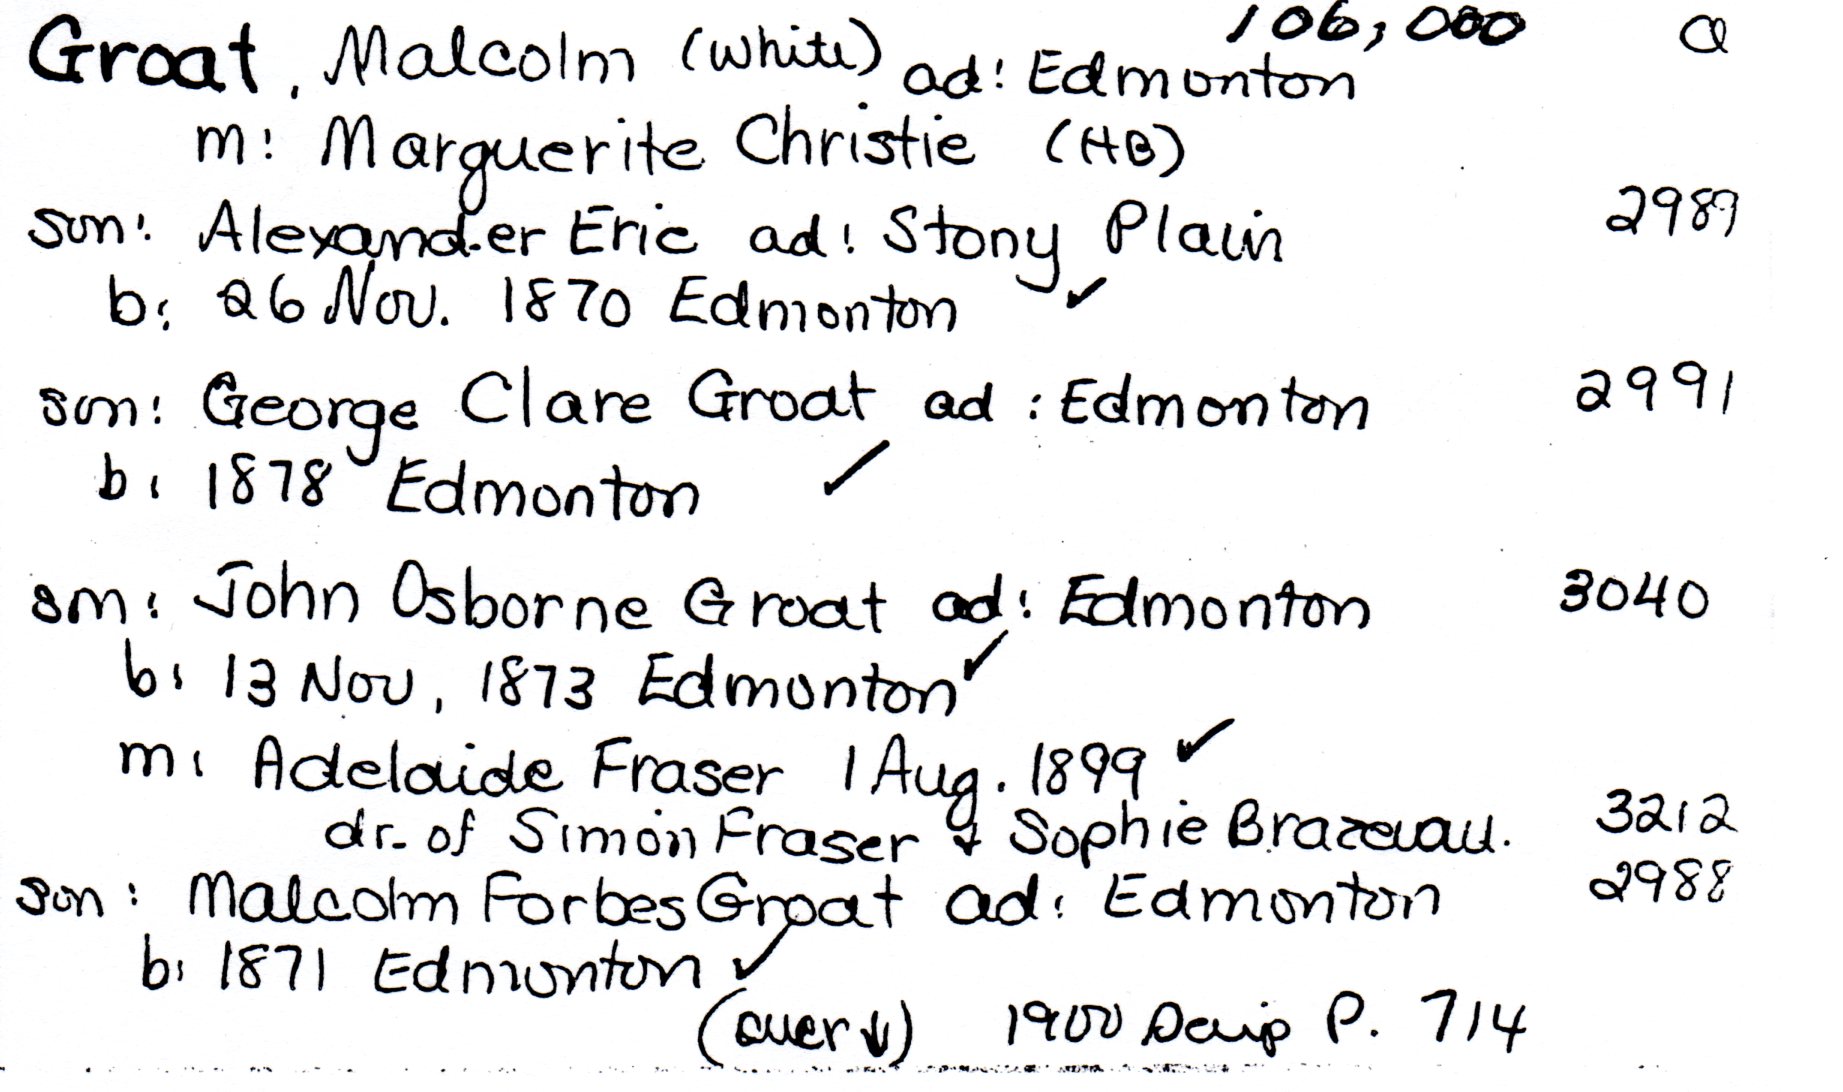 106,000 a
Groat, Malcolm (White) ad: Edmonton
m: Marguerite Christie (HB)
son: Alexander Eric ad: Stony Plain 2989
b: 26 Nov. 1870 Edmonton ✓
son: George Clare Groat ad: Edmonton 2991
b: 1878 Edmonton ✓
son: John Osborne Groat ad: Edmonton 3040
b: 13 Nov, 1873 Edmonton ✓
m: Adelaide Fraser 1 Aug. 1899 ✓
dr. of Simon Fraser & Sophie Brazeuau. 3212
son: Malcolm Forbes Groat ad: Edmonton 2988
b: 1871 Edmonton ✓
(over ↓) 1900 Scrip P. 714